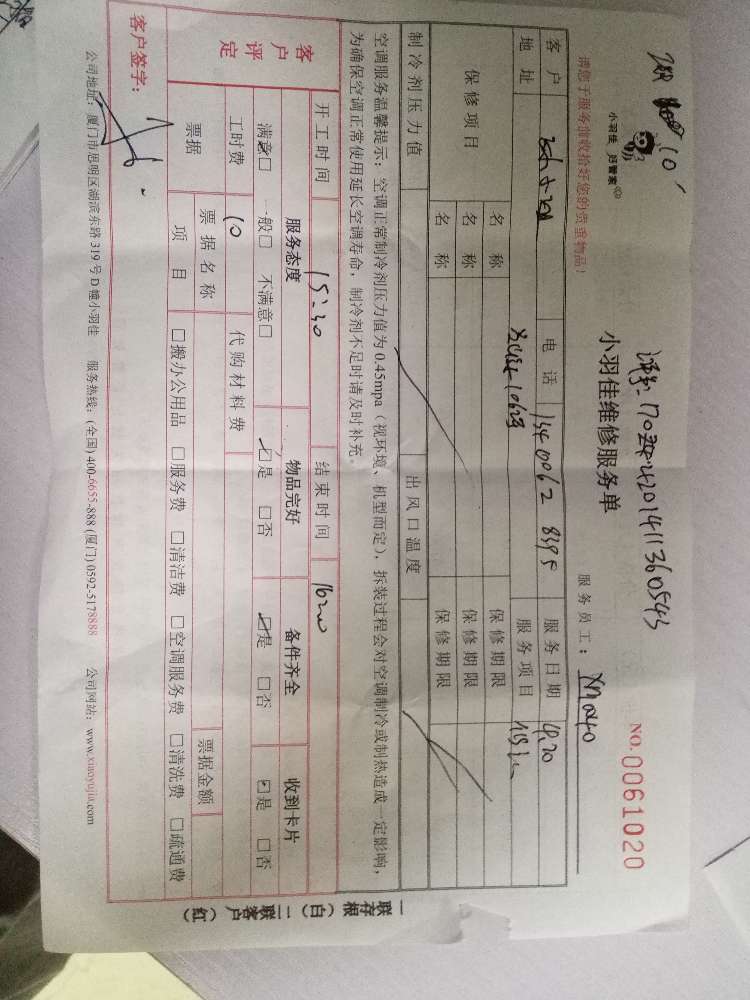 小羽佳 好管家
请您于服务前收拾好您的贵重物品!
小羽佳维修服务单
NO.0061020
服务员工: XM0240
客户 电话 134 0062 8395 服务日期 4.20
地址 服务项目
保修项目 名称 保修期限
名称 保修期限
名称 保修期限
制冷剂压力值 出风口温度
空调服务温馨提示:空调正常制冷剂压力值为 0.45mpa(视环境、机型而定),拆装过程会对空调制冷或制热造成一定影响,
为确保空调正常使用延长空调寿命,制冷剂不足时请及时补充。
开工时间 15:30 结束时间 16:00
客户评定 服务态度 物品完好 备件齐全 收到卡片
满意□ 一般□ 不满意□ ☑是 □否 ☑是 □否 ☑是 □否
工时费 10 代购材料费
票据 票据名称 票据金额
项目 □搬办公用品 □服务费 □清洁费 □空调服务费 □清洗费 □疏通费
客户签字:
公司地址:厦门市思明区湖滨东路 319 号 D 幢小羽佳 服务热线:(全国) 400-6655-888 (厦门) 0592-5178888 公司网站:www.xiaoyujia.com
一联存根(白)二联客户(红)